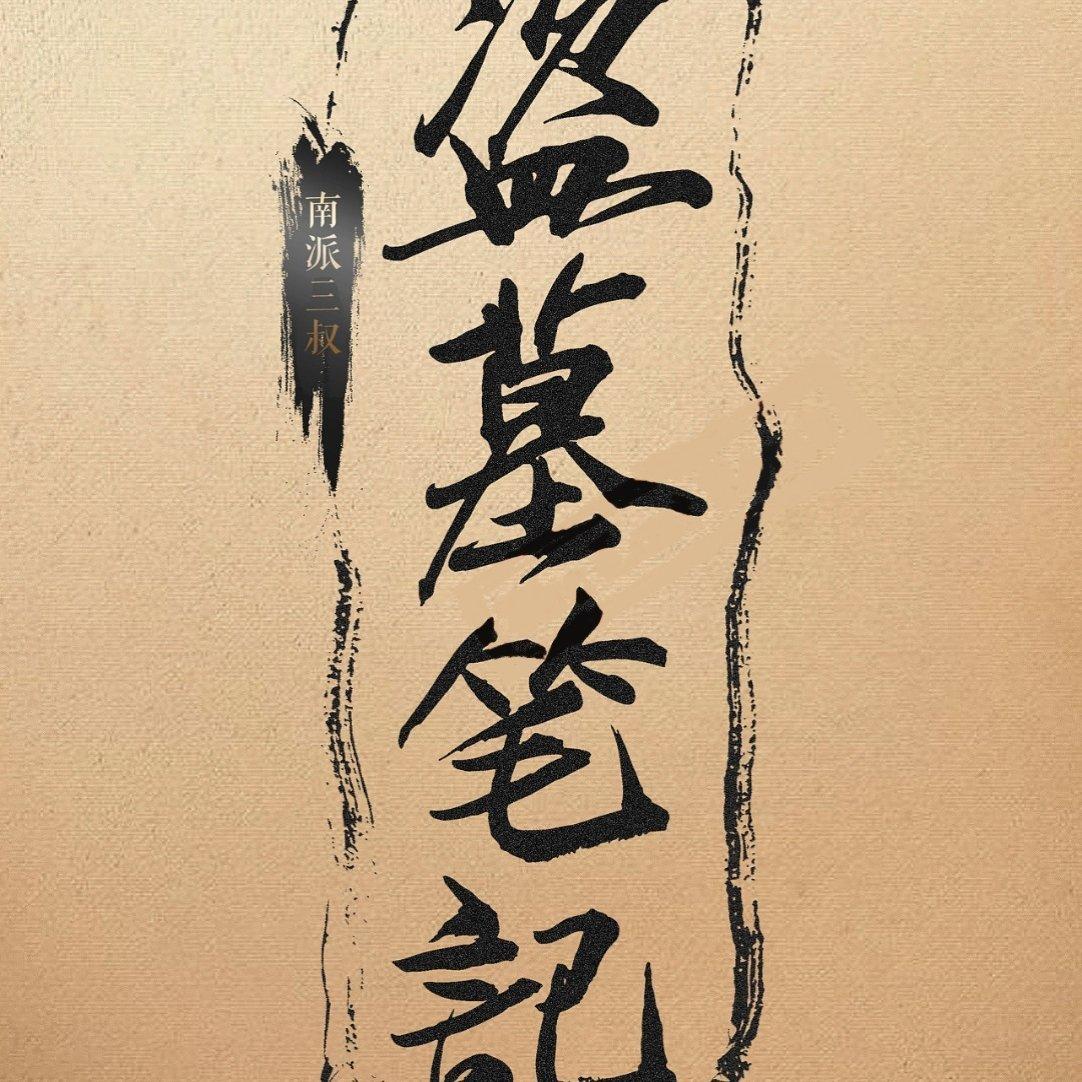 盗墓笔記
南派三叔